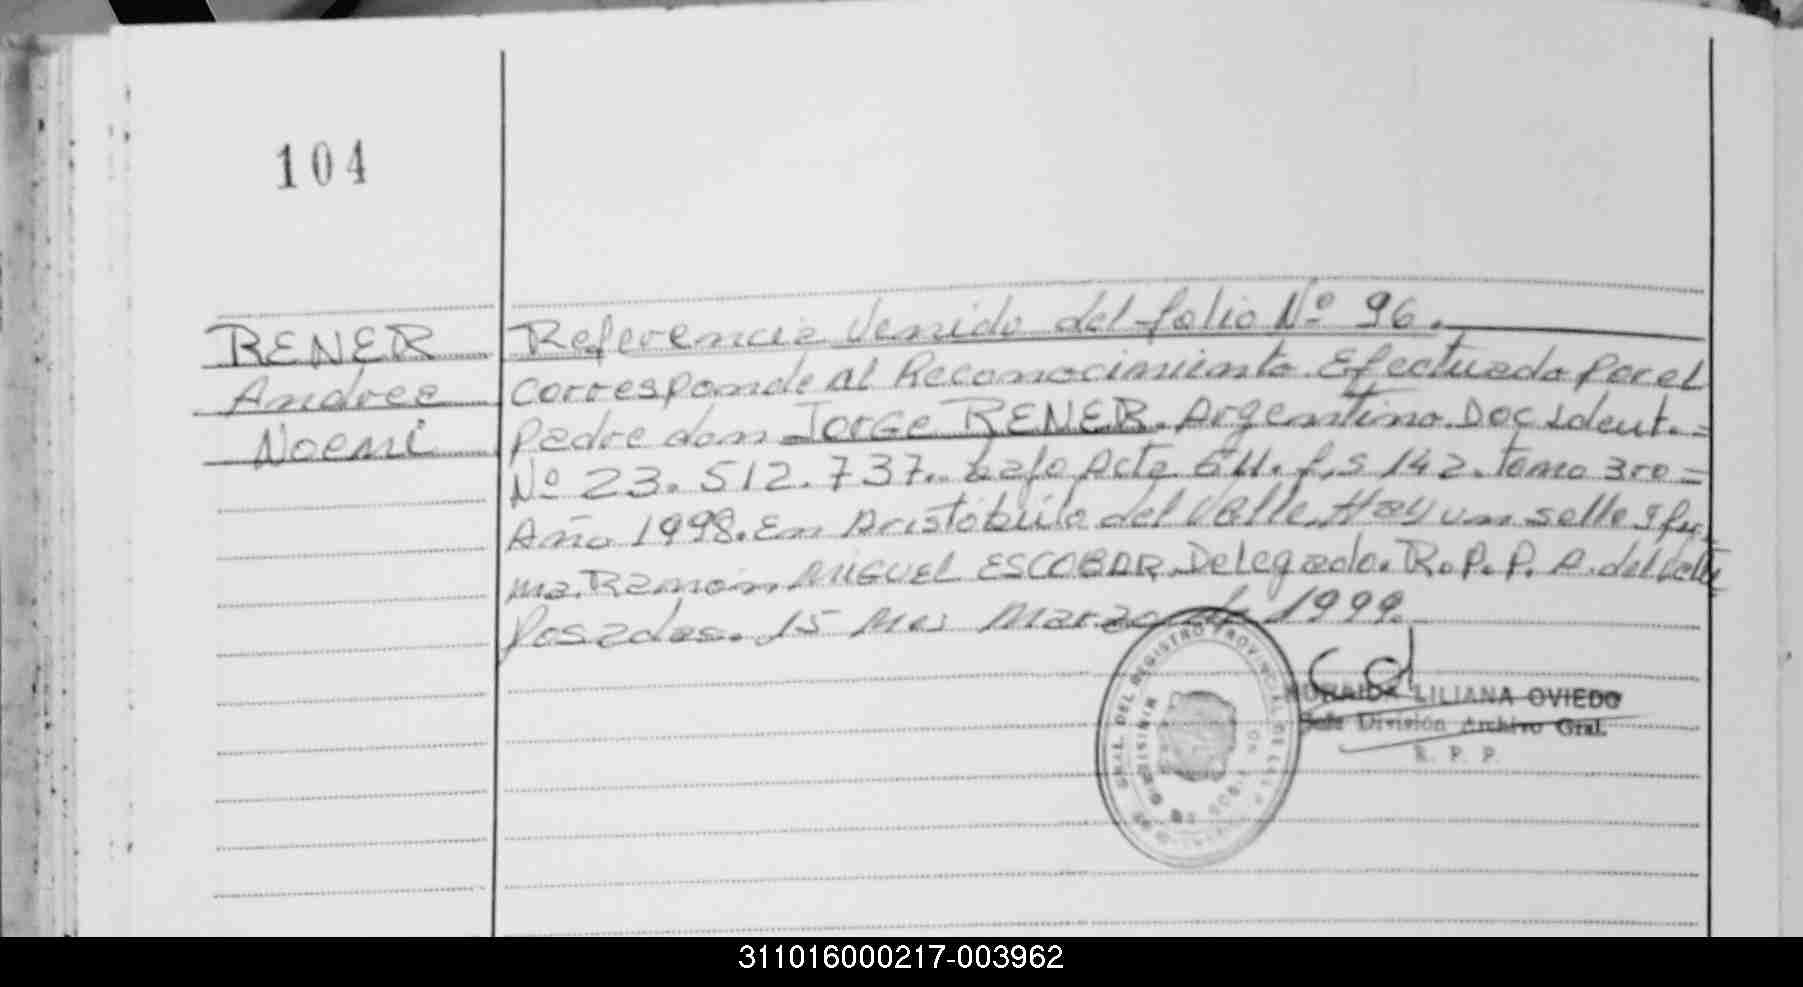 104
RENER
Andrea
Noemi
Referencia Venida del folio Nº 96.
Corresponde al Reconocimiento Efectuado Por el
Padre don Jorge RENER. Argentino. Doc Ident. =
Nº 23.512.737. bajo Acta f,s 142. tomo 3ro =
Año 1998. En Aristóbulo del Valle. Hay un sello y fir,
ma. Ramón MIGUEL ESCOBAR. Delegado. R.P.P. A. del Valle
Posadas. 15 Mes Marzo de 1999.
GRAL. DEL REGISTRO PROVINCIAL DE LAS
LILIANA OVIEDO
Jefe División Archivo Gral.
R. P. P.
311016000217-003962